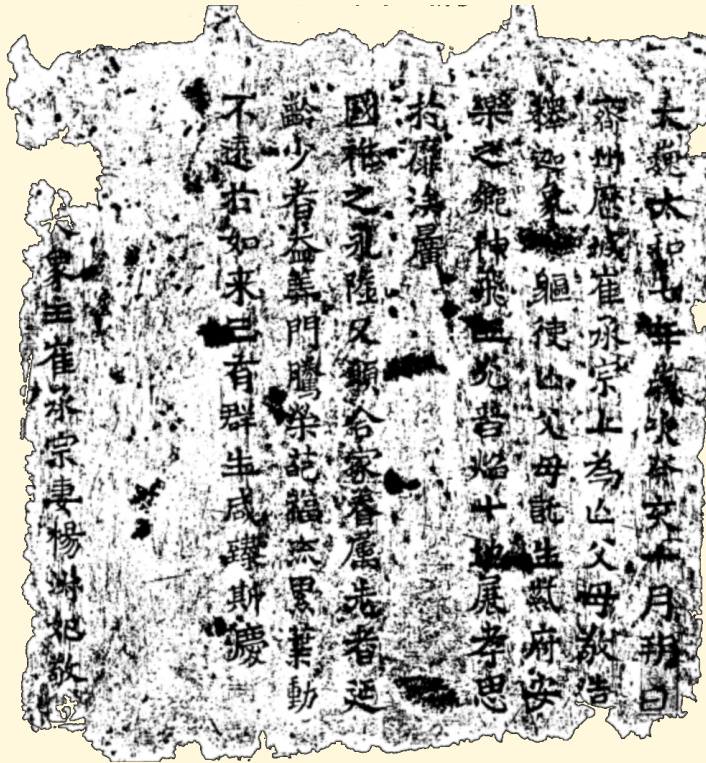 大魏太和七年歲次癸亥十月朔日
齊州歷城崔承宗上為亡父母敬造
釋迦象一軀使亡父母託生紫府安
樂之鄉神飛三光普焰十地展孝思
於靡涘屬
國祚之永隆又願合家眷属老者延
齡少者益筭門騰榮葩福流累葉動
不遠若如来三有群生咸臻斯慶
大象主崔承宗妻楊 妃敬立